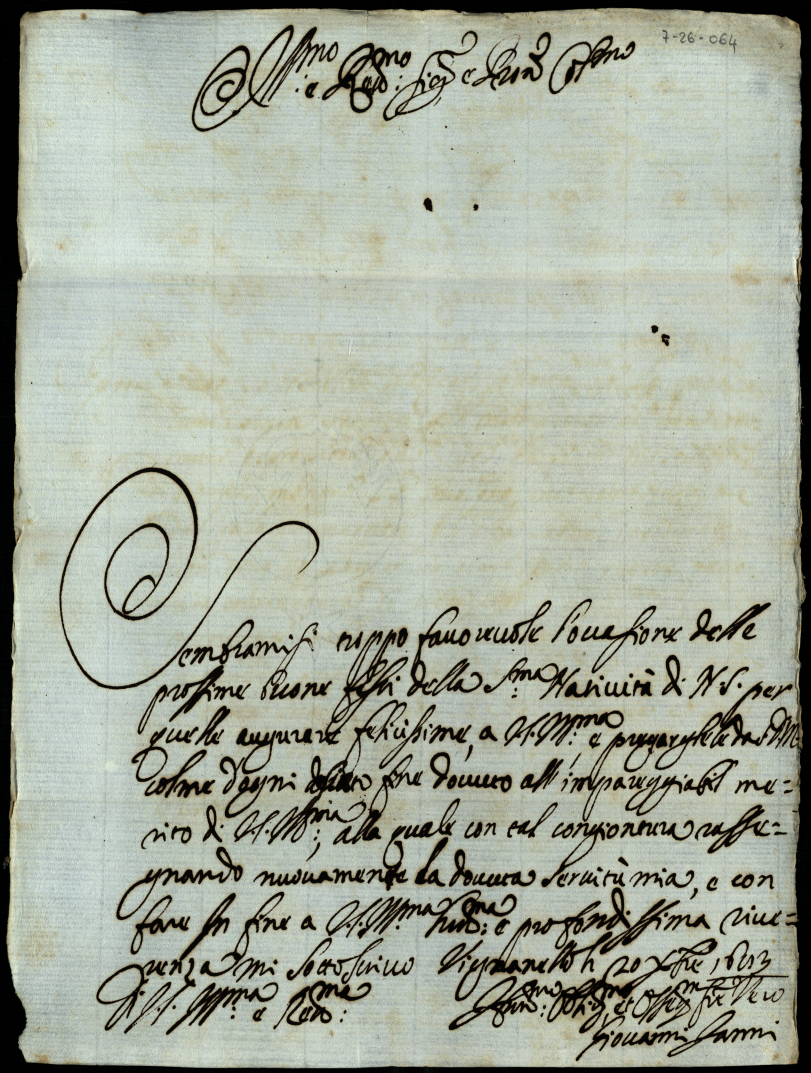 7-26-064
Ill.mo e Rev.mo Sig.r e Pron Col.mo
Sembramisi troppo favorevole l'occasione delle
prossime buone feste della S.ma Natività di N.S. per
quelle augurare felicissime, a V.S. Ill.ma, e pregarghele da
colme d'ogni fine dovuto all'impareggiabil me=
rito di V.S. Ill.ma, alla quale con tal congiontura rasse=
gnando nuovamente la dovuta Servitù mia, e con
fare In fine a V.S. Ill.ma hum.ma e profondissima rive=
renza mi sottoscrivo Vignanello li 20 Xbre
Di V.S. Ill.ma e Rev.ma
Giovanni Janni